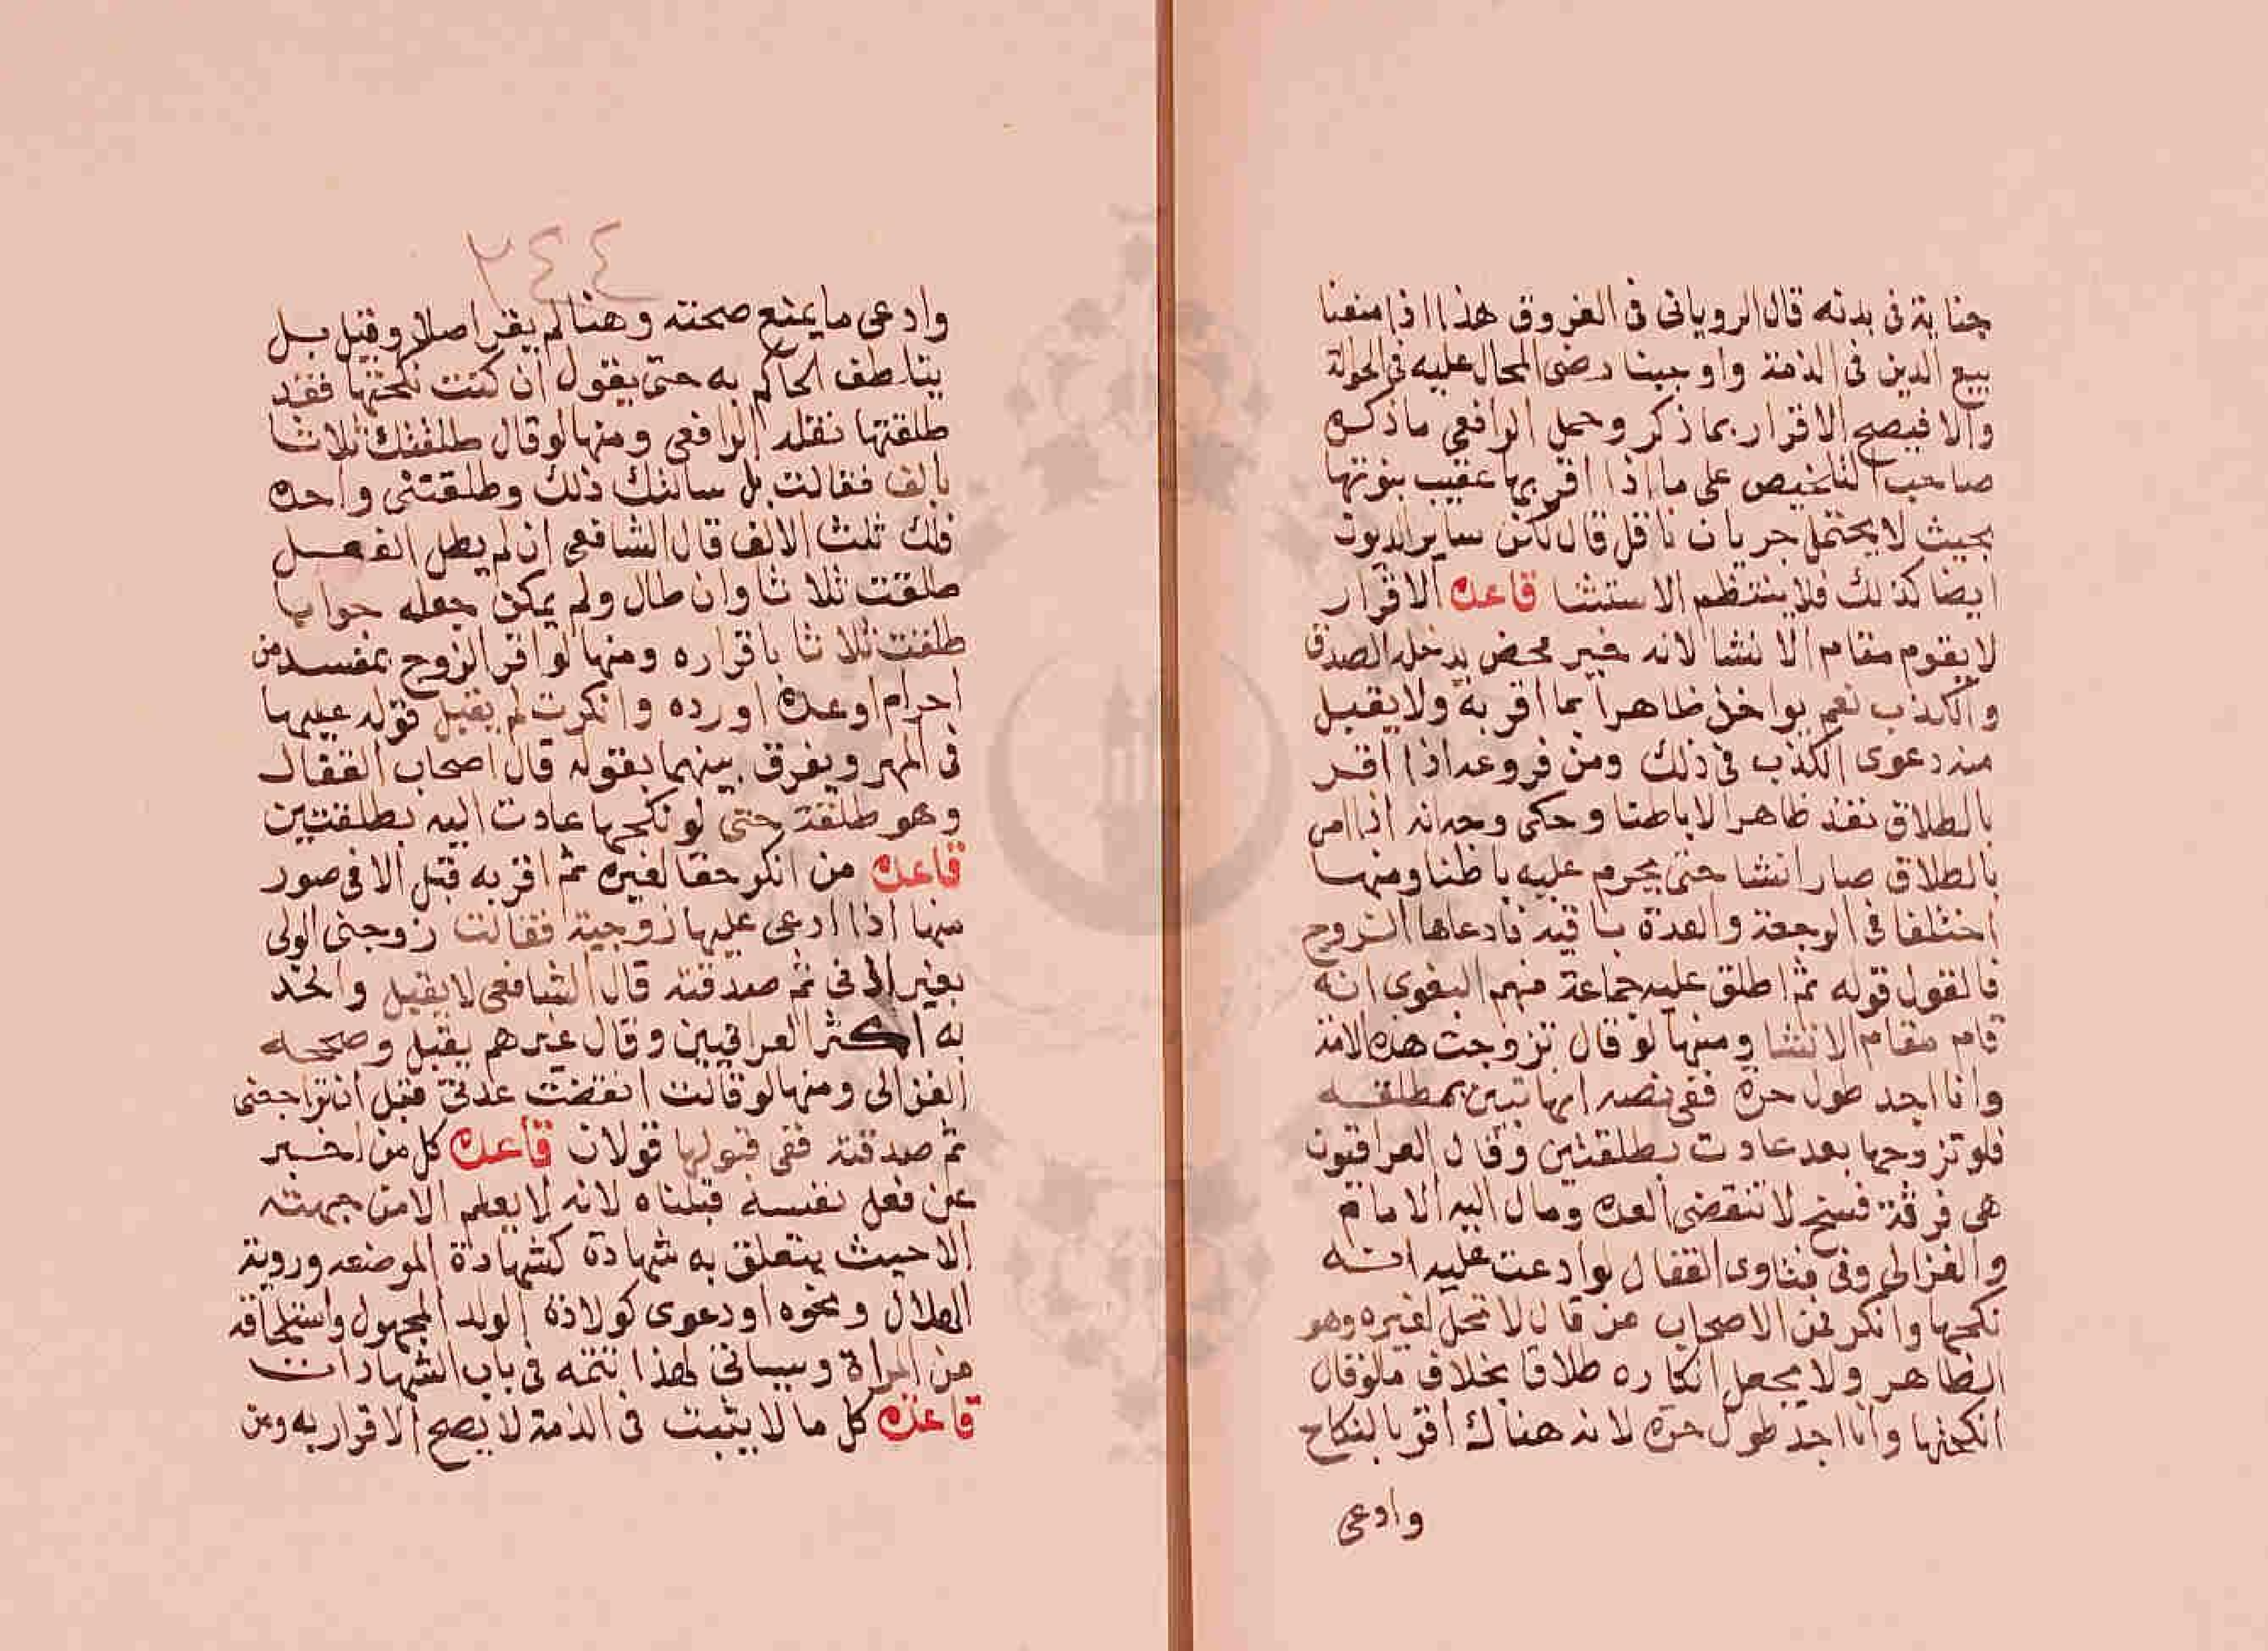 جناية في بدنه قال الروياني في الفروق هذا اذا منعنا
بيع الدين في الذمة واوجبنا رضى المحال عليه في الحوالة
والا فيصح الاقرار بما ذكر وحمل الرافعي ما ذكره
صاحب التلخيص على ما اذا اقر بها عقيب ثبوتها
بحيث لا يحتمل جريان ناقل قال لكن ساير الديون
ايضا كذلك فلا ينتظم الاستثنا قاعدة الاقرار
لا يقوم مقام الانشا لانه خبر محض يدخله الصدق
والكذب نعم يواخذ ظاهرا بما اقر به ولا يقبل
منه دعوى الكذب في ذلك ومن فروعه اذا اقر
بالطلاق نفذ ظاهرا لا باطنا وحكى وجه انه اذا اقر
بالطلاق صار انشا حتى يحرم عليه باطنا ومنها
اختلفا في الرجعة والعدة باقية فادعاها الزوج
فالقول قوله ثم اطلق عليه جماعة منهم البغوى انه
قام مقام الانشا ومنها لو قال تزوجت هذه الامة
وانا اجد طول حرة ففي نصه انها تبين بطلقة
فلو تزوجها بعد عادت بطلقتين وقال العراقيون
هى فرقة فسخ لا تنقضى العدد ومال اليه الامام
والغزالي وفي فتاوى القفال لو ادعت عليه انه
نكحها وانكر فمن الاصحاب من قال لا تحل لغيره وهو
الظاهر ولا يجعل انكاره طلاقا بخلاف ما لو قال
انكحتها وانا اجد طول حرة لانه هناك اقر بالنكاح
وادعى
٢٤٤
وادعى ما يمنع صحته وهنا لم يقر اصلا وقيل بل
يتلطف الحاكم به حتى يقول ان كنت نكحتها فقد
طلقتها نقله الرافعي ومنها لو قال طلقتك ثلاثا
بالف فقالت بل سالتك ذلك وطلقتنى واحدة
فلك ثلث الالف قال الشافعي ان لم يطل الفصل
طلقت ثلاثا وان طال ولم يمكن جعله جوابا
طلقت ثلاثا باقراره ومنها لو اقر الزوج بمفسد من
احرام او عدة او رده وانكرت لم يقبل قوله عليها
في المهر ويفرق بينهما بقوله قال اصحاب القفال
وهو طلقة حتى لو نكحها عادت اليه بطلقتين
قاعدة من انكر حقا لغيره ثم اقر به قبل الا في صور
منها اذا ادعى عليها زوجية فقالت زوجنى الولى
بغير اذنى ثم صدقته قال الشافعي لا يقبل واخذ
به اكثر العراقيين وقال غيرهم يقبل وصححه
الغزالى ومنها لو قالت انقضت عدتى قبل ان تراجعنى
ثم صدقته ففي قبولها قولان قاعدة كل من اخبر
عن فعل نفسه قبلناه لانه لا يعلم الا من جهته
الا حيث يتعلق به شهادة كشهادة المرضعه وروية
الهلال ونحوه او دعوى كولادة الولد المجهول واستلحاقه
من امراة وسياتى لهذا تتمه في باب الشهادات
قاعدة كل ما لا يثبت في الذمة لا يصح الاقرار به ومن